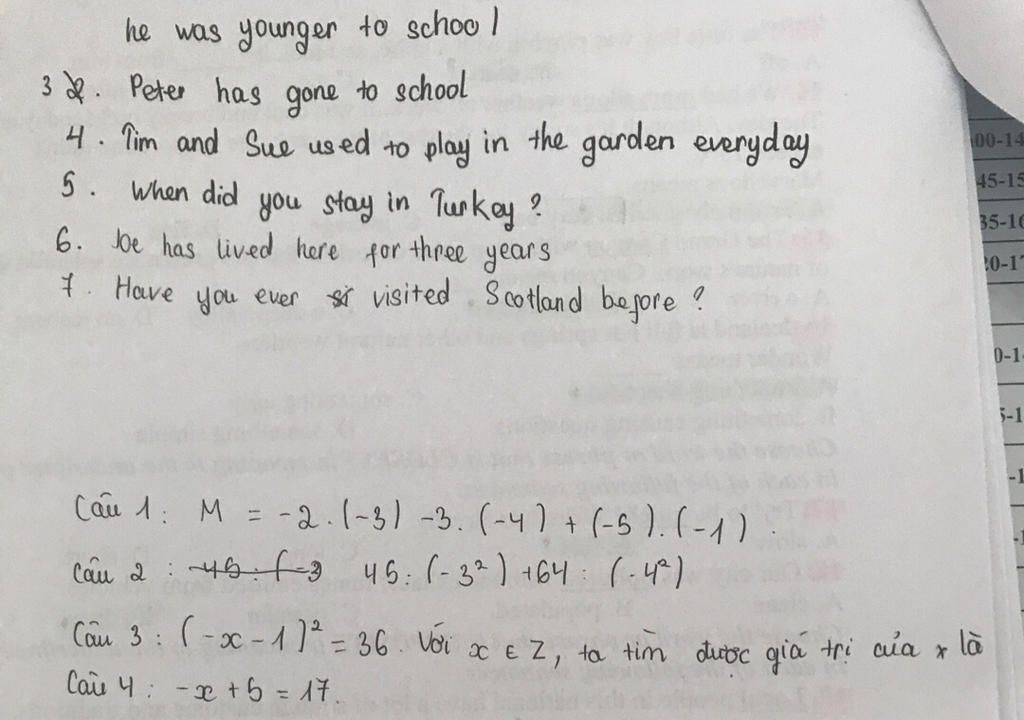 he was younger to school
3. Peter has gone to school
4. Tim and Sue used to play in the garden everyday
5. When did you stay in Turkey?
6. Joe has lived here for three years
7. Have you ever visited Scotland before?
00-14
45-15
35-10
20-17
0-1
5-1
-1
Câu 1: M = -2.(-3) -3.(-4) + (-5).(-1).
Câu 2: 45:(-3²) +64:(-4²)
Câu 3: (-x-1)² = 36. Với x ∈ Z, ta tìm được gía trị của x là
Câu 4: -x+5 = 17.